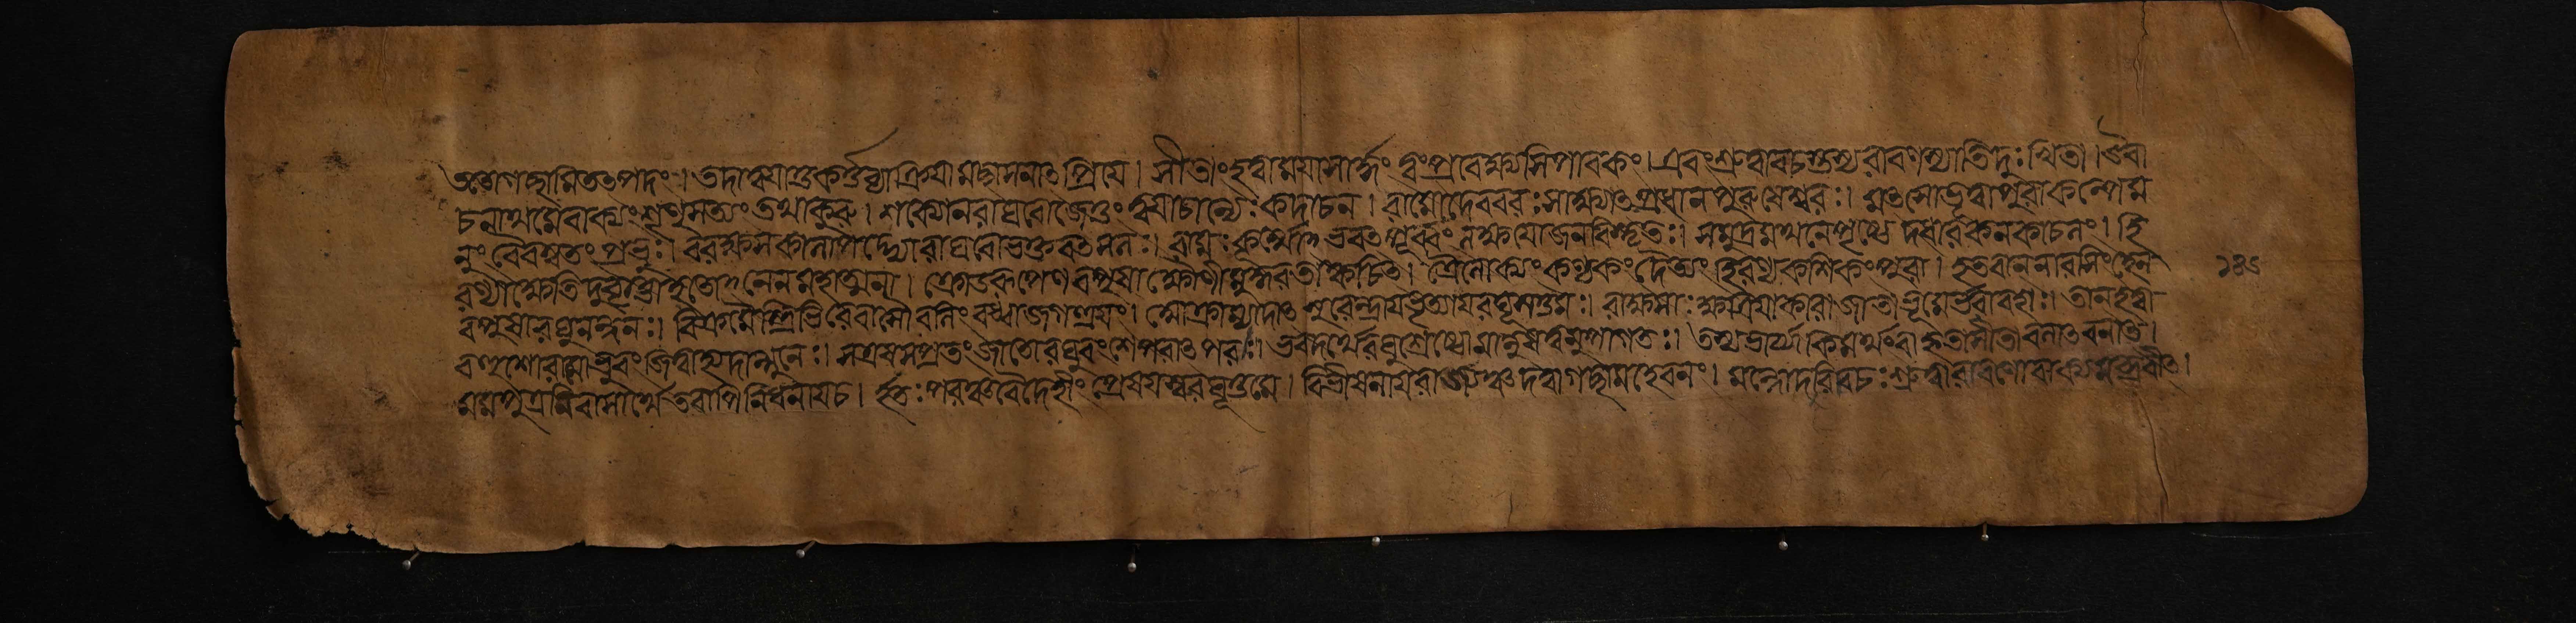 ততোগচ্ছামিতত্পদং। তদাত্বয়াশুকর্ত্তব্যাক্রিয়ামচ্ছাসনাত্প্রিয়। সীতাংহত্বাময়াসার্দ্ধং ত্বংপ্রাবেক্ষ্যসিপাবকং। এবংশ্রুত্বাবচস্তস্যরাবণস্যাতিদুঃখিতা। উবা
চনাথমেবাক্যংশৃণুসত্যং তথাকুরু। শক্যোনরাঘবোজেতুং ত্বয়াচান্যৈঃকদাচন। রামোদেববরঃসাক্ষাত্প্রধানপুরুষেশ্বরঃ। মত্স্যোভূত্বাপুরাকল্পেম
নুংবৈবস্বতংপ্রভুঃ। ররক্ষসকলাপদ্ভ্যোরাঘবোভক্তবত্সলঃ। রামঃকূর্ম্মোভবত্পূর্ব্বংলক্ষযোজনবিস্তৃতঃ। সমুদ্রমথনেপৃষ্ঠে দধারকনকাচলং। হি
রণ্যাক্ষোতিদুর্বৃত্তোহতোনেনমহাত্মনা। ক্রোডরূপেণবপুষা ক্ষোণীমুদ্ধরতাক্বচিত্। ত্রৈলোক্যকণ্টকংদৈত্যংহিরণ্যকশিপুংপুরা। হতবান্নারসিংহেন ১৪১
বপুষারঘুনন্দনঃ। বিক্রমৈস্ত্রিভিরেবাসৌবলিংবধ্বাজগত্ত্রয়ং। আক্রম্যাদাত্সুরেন্দ্রায়ভৃত্যায়রঘুসত্তমঃ। রাক্ষসাঃক্ষত্রিয়াকারাজাতাভূমের্ভরাবহাঃ। তান্হত্বা
বহুশোরামোভুবংজিত্বাহ্যদান্মুনেঃ। সএবসাম্প্রতংজাতোরঘুবংশেপরাত্পরঃ। ভবদর্থেরঘুশ্রেষ্ঠোমানুষত্বমুপাগতঃ। তস্যভার্য্যাকিমর্থংবাহৃতাসীতাবনাত্বলাত্।
মমপুত্রবিনাশার্থেতবাপিনিধনায়চ। ইতঃপরঞ্চবৈদেহীংপ্রেষয়স্বরঘূত্তমে। বিভীষণায়রাজ্যঞ্চদত্বাগচ্ছামহেবনং। মন্দোদরিবচঃশ্রুত্বারাবণোবাক্যমব্রবীত্।